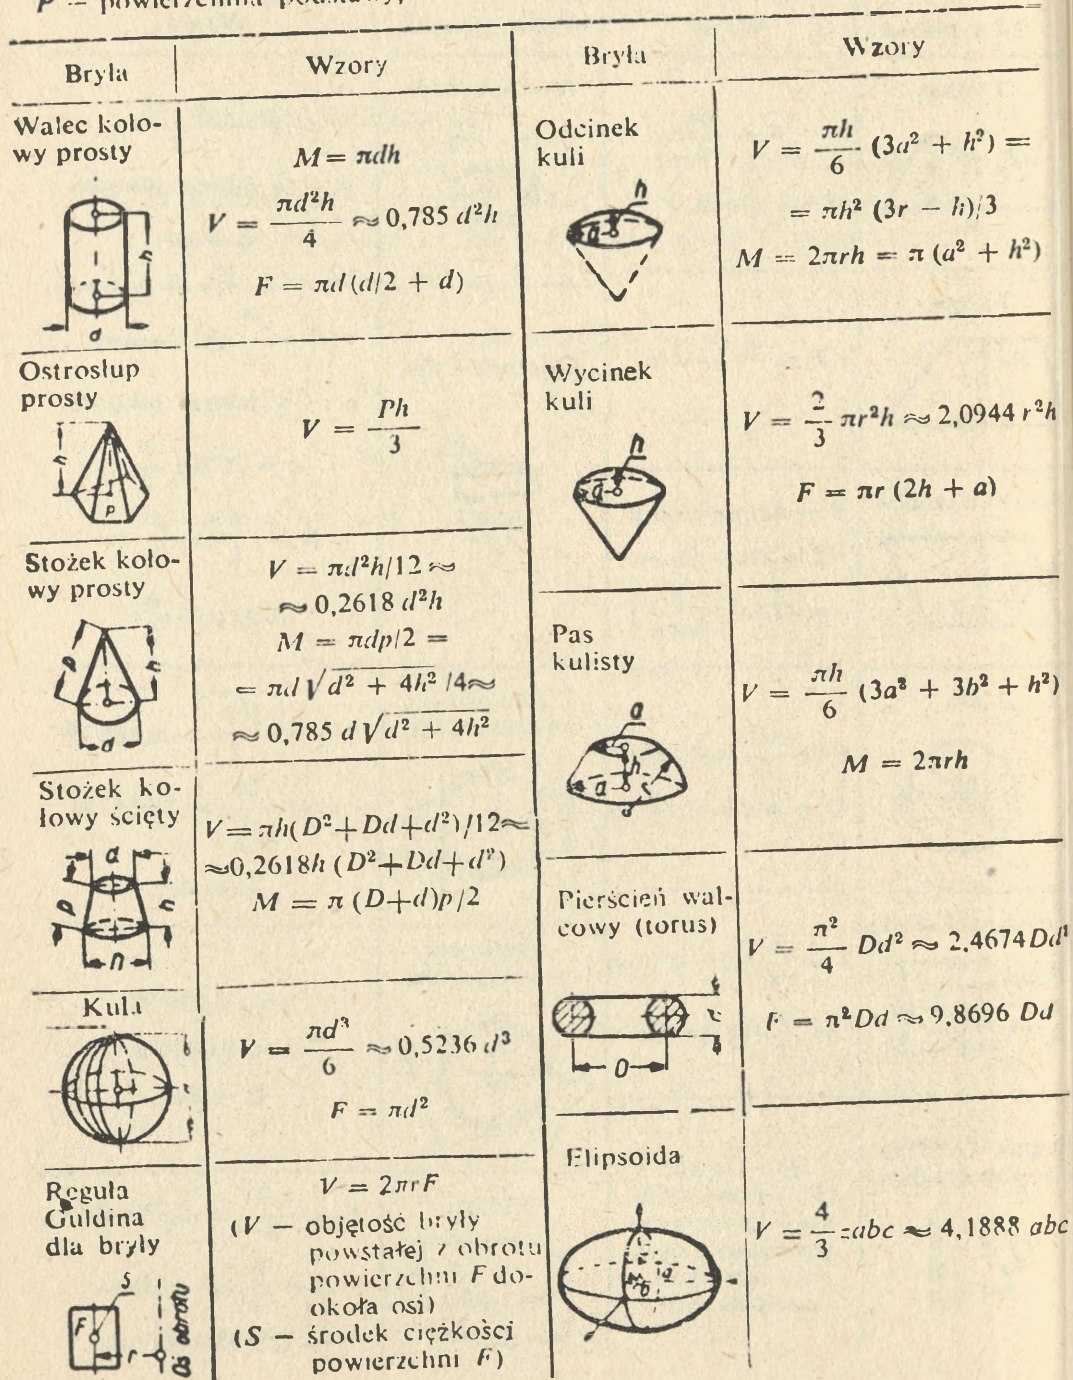 P – powierzchnia podstawy,
Bryła Wzory
Walec koło-
wy prosty
M = πdh
V = πd²h/4 ≈ 0,785 d²h
F = πd (d/2 + d)
h
d
Ostrosłup
prosty
V = Ph/3
h
P
Stożek koło-
wy prosty
V = πd²h/12 ≈
≈ 0,2618 d²h
M = πdp/2 =
= πd √(d² + 4h²) /4 ≈
≈ 0,785 d √(d² + 4h²)
p h
d
Stożek ko-
łowy ścięty
V = πh(D²+Dd+d²)/12 ≈
≈ 0,2618h (D²+Dd+d²)
M = π (D+d)p/2
d
p h
D
Kula
V = πd³/6 ≈ 0,5236 d³
F = πd²
Reguła
Guldina
dla bryły
V = 2πrF
(V – objętość bryły
powstałej z obrotu
powierzchni F do-
okoła osi)
(S – środek ciężkości
powierzchni F)
S
F
r
Oś obrotu
Bryła Wzory
Odcinek
kuli
V = πh/6 (3a² + h²) =
= πh² (3r – h)/3
M = 2πrh = π (a² + h²)
h
a
Wycinek
kuli
V = 2/3 πr²h ≈ 2,0944 r²h
F = πr (2h + a)
h
a
Pas
kulisty
V = πh/6 (3a² + 3b² + h²)
M = 2πrh
a
h
a r
Pierścień wal-
cowy (torus)
V = π²/4 Dd² ≈ 2,4674 Dd²
F = π²Dd ≈ 9,8696 Dd
D
Elipsoida
V = 4/3 πabc ≈ 4,1888 abc